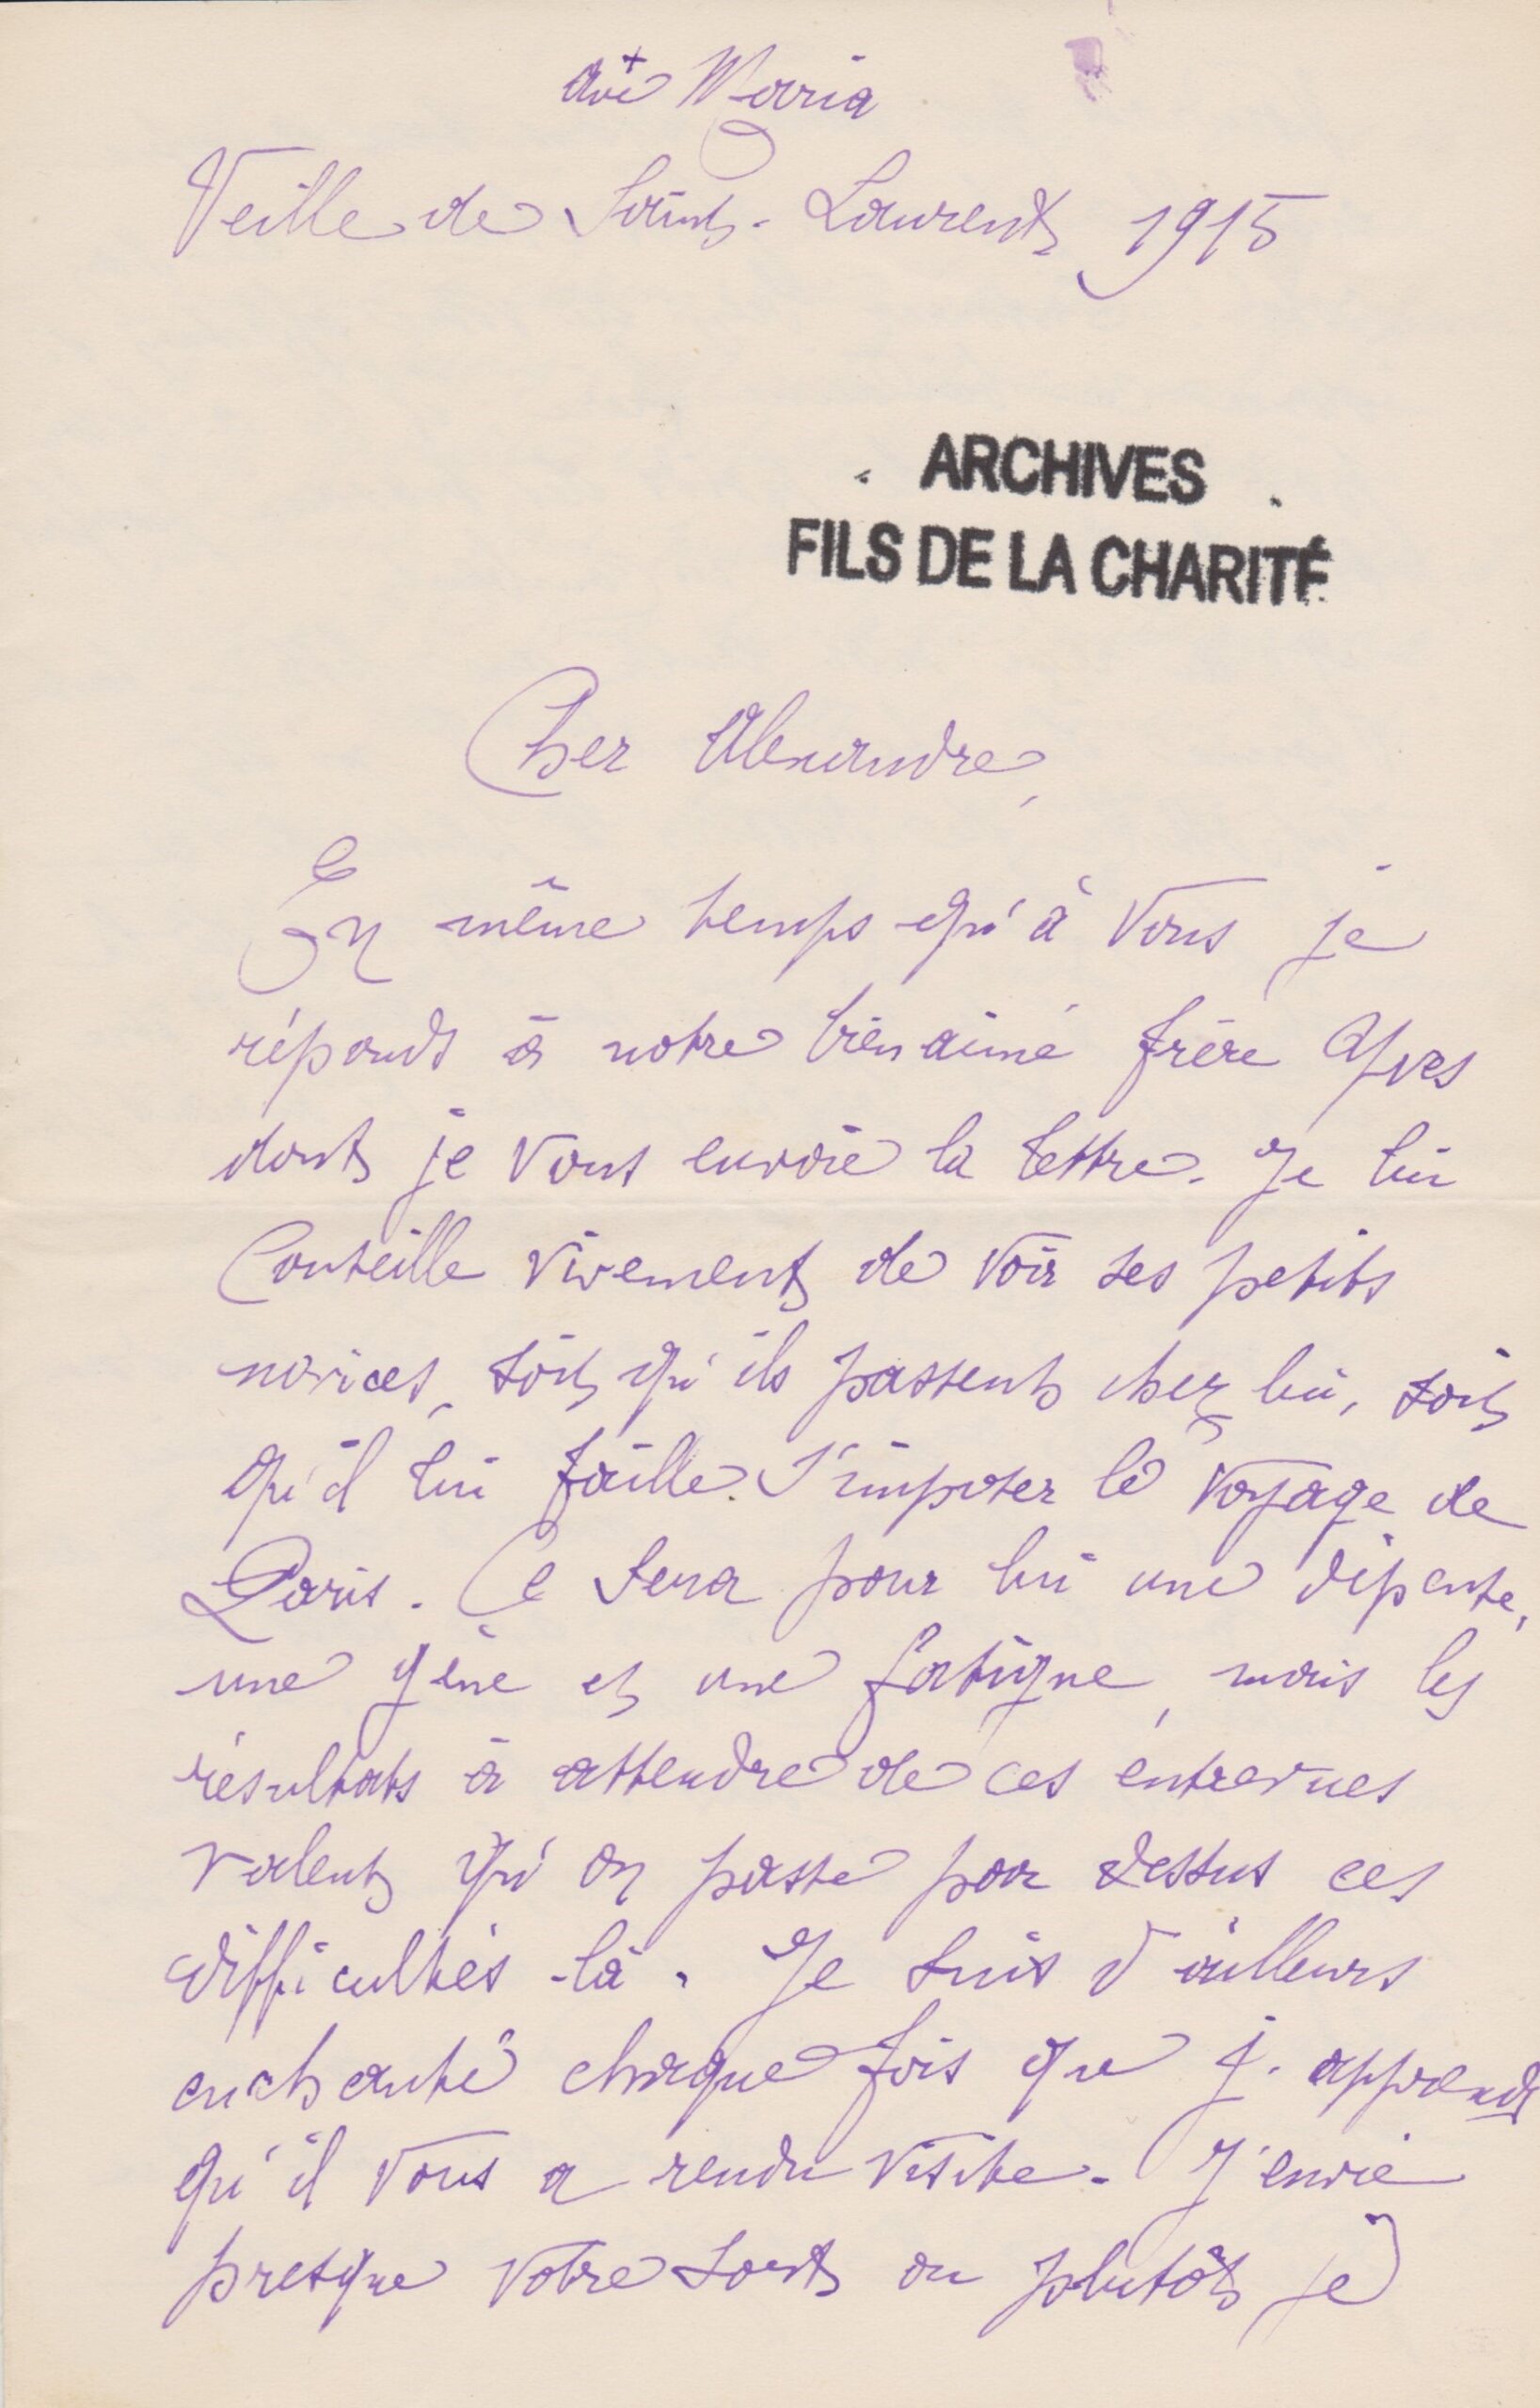 +
Ave Maria
Veille de Saint-Laurent 1915
ARCHIVES
FILS DE LA CHARITÉ
Cher Alexandre,
En même temps qu'à vous je
réponds à notre bien aimé frère Yves
dont je vous envoie la lettre. Je lui
conseille vivement de voir ses petits
novices, soit qu'ils passent chez lui, soit
qu'il lui faille s'imposer le voyage de
Paris. Ce sera pour lui une dépense,
une gêne et une fatigue, mais les
résultats à attendre de ces entrevues
valent qu'on passe par dessus ces
difficultés-là. Je suis d'ailleurs
enchanté chaque fois que j'apprends
qu'il vous a rendu visite. J'envie
presque votre sort ou plutôt je